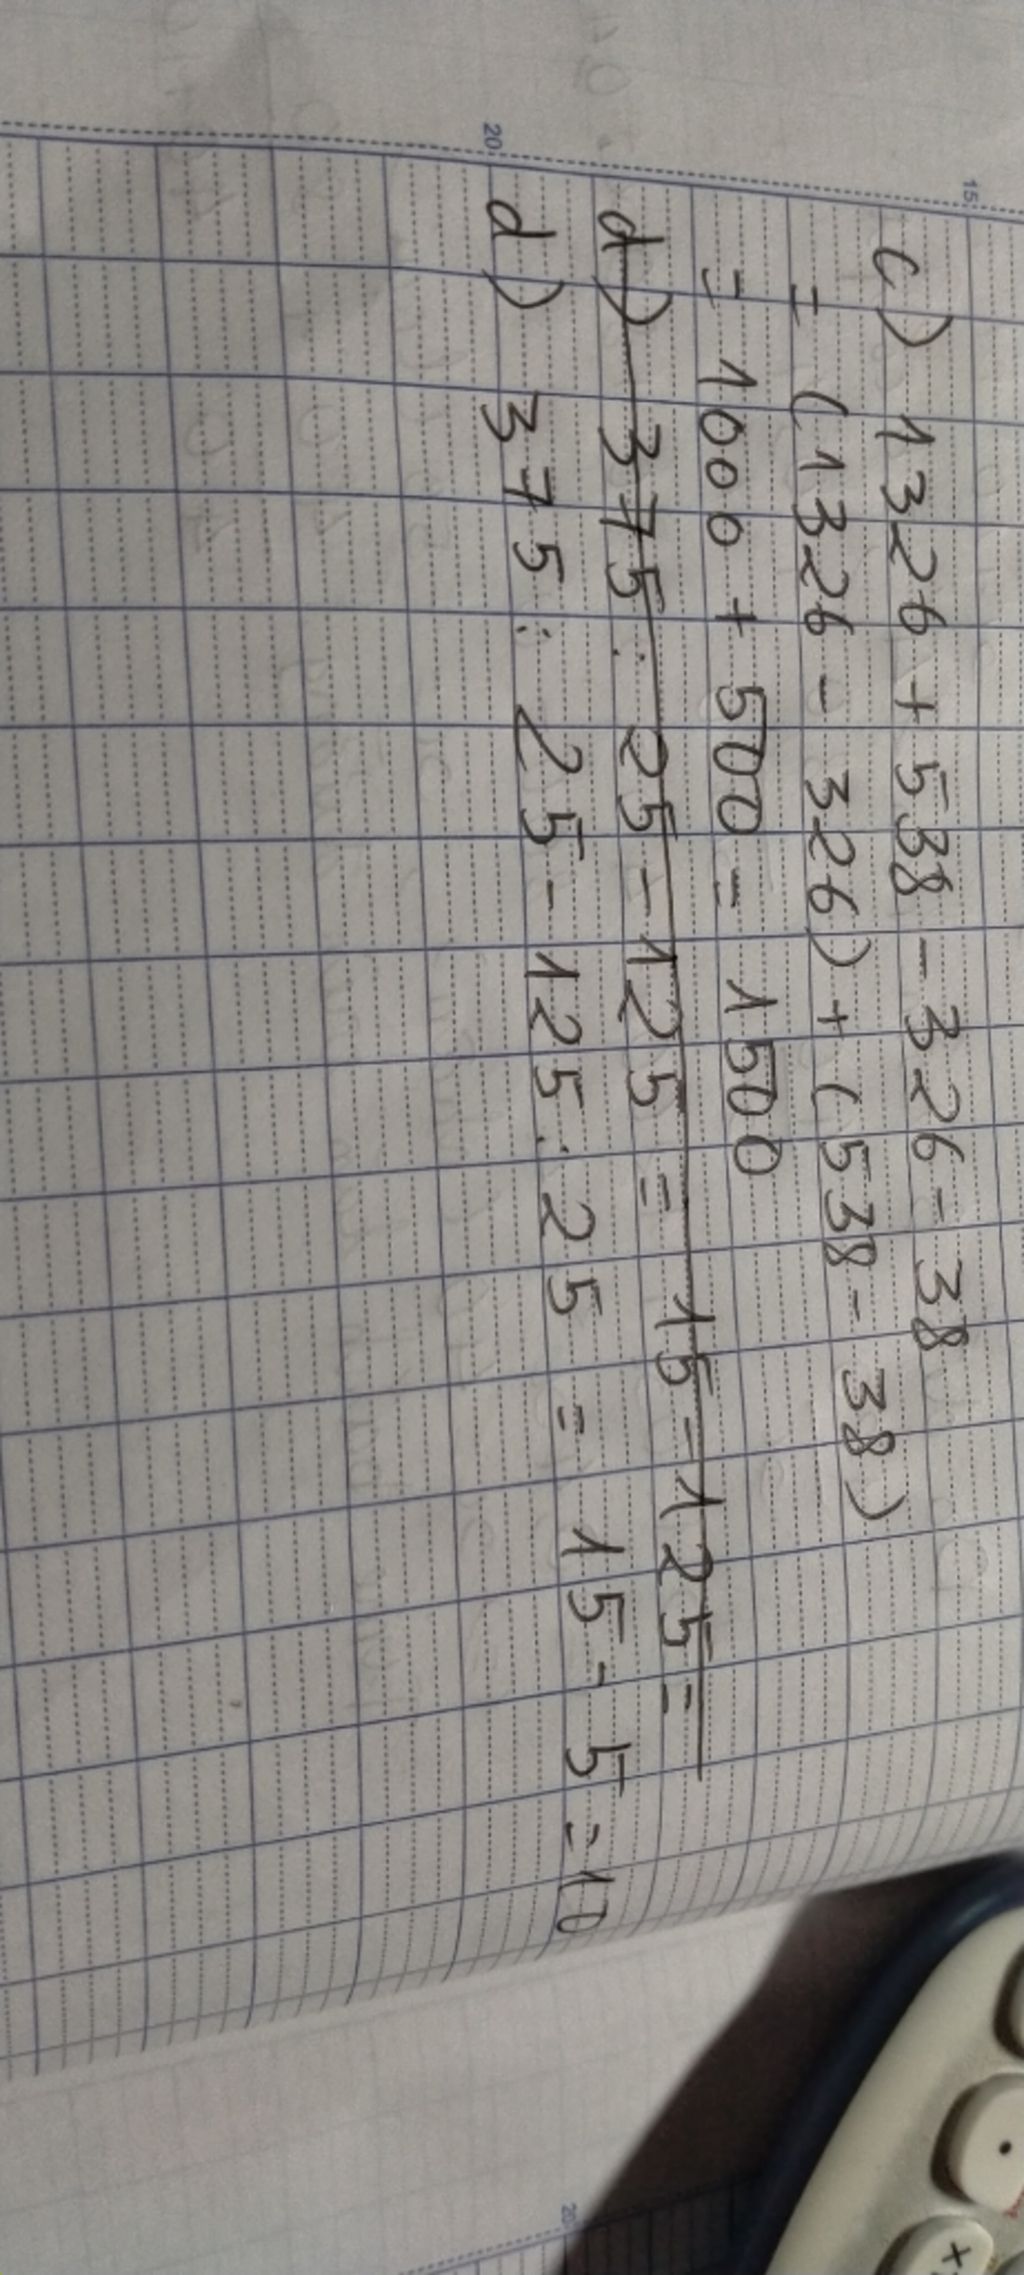 15
c) 1326 + 538 - 326 - 38
= (1326 - 326) + (538 - 38)
= 1000 + 500 = 1500
d) 375 : 25 - 125 = 15 - 125 =
20
d) 375 : 25 - 125 : 25 = 15 - 5 = 10
20